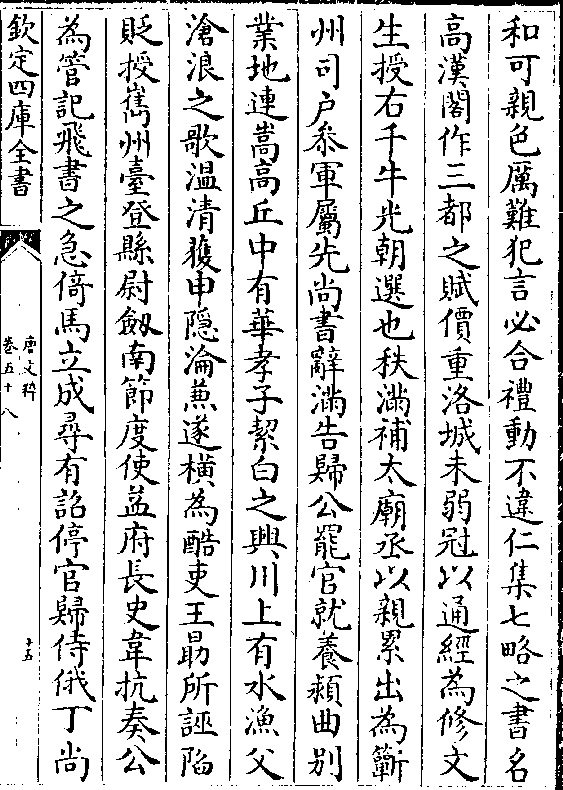 和可親色厲難犯言必合禮動不違仁集七略之書名
高漢閣作三都之賦價重洛城未弱冠以通經為修文
生授右千牛光朝選也秩滿補太廟丞以親累出為蘄
州司户叅軍屬先尚書辭滿告歸公罷官就養頴曲别
業地連嵩高丘中有華孝子絜白之興川上有水漁父
滄浪之歌温清獲申隠淪兼遂横為酷吏王勗所誣陷
貶授嶲州臺登縣尉劔南節度使益府長史韋抗奏公
為管記飛書之急倚馬立成尋有詔停官歸侍俄丁尚
欽定四庫全書
唐文粹
卷五十八
十五